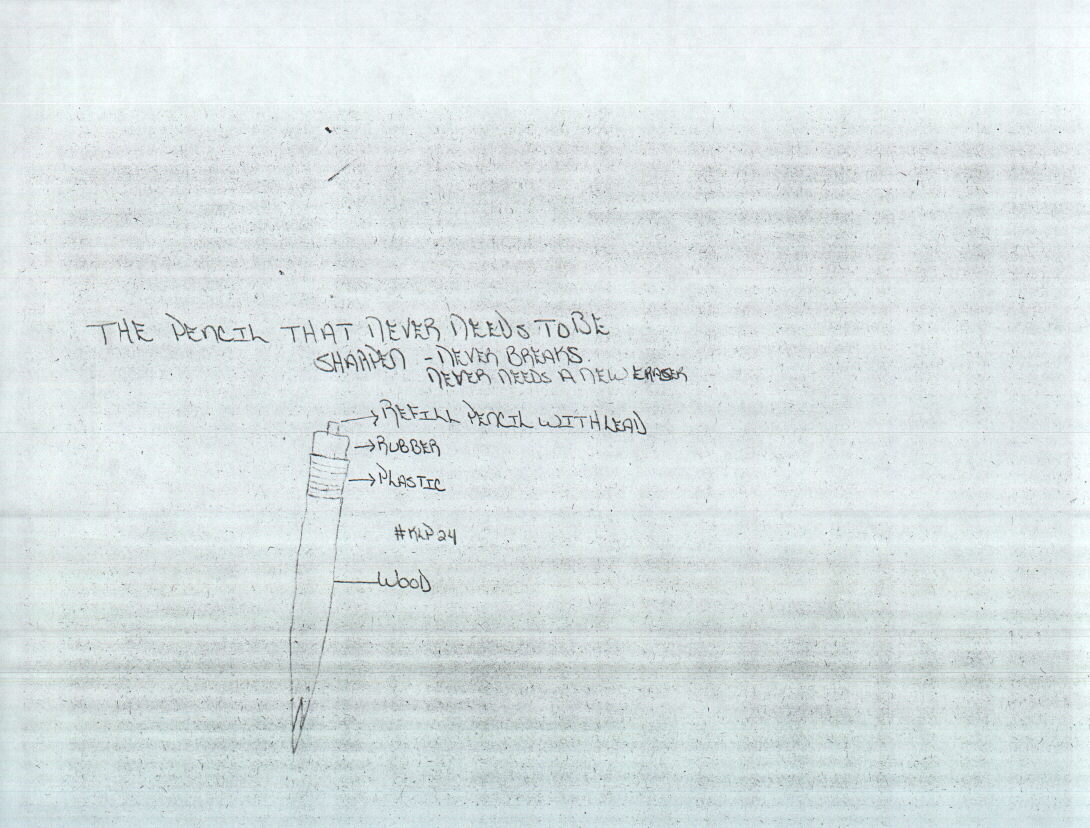 THE PENCIL THAT NEVER NEEDS TO BE
SHARPEN - NEVER BREAKS
NEVER NEEDS A NEW ERASER
REFILL PENCIL WITH LEAD
RUBBER
PLASTIC
#KLP24
WOOD